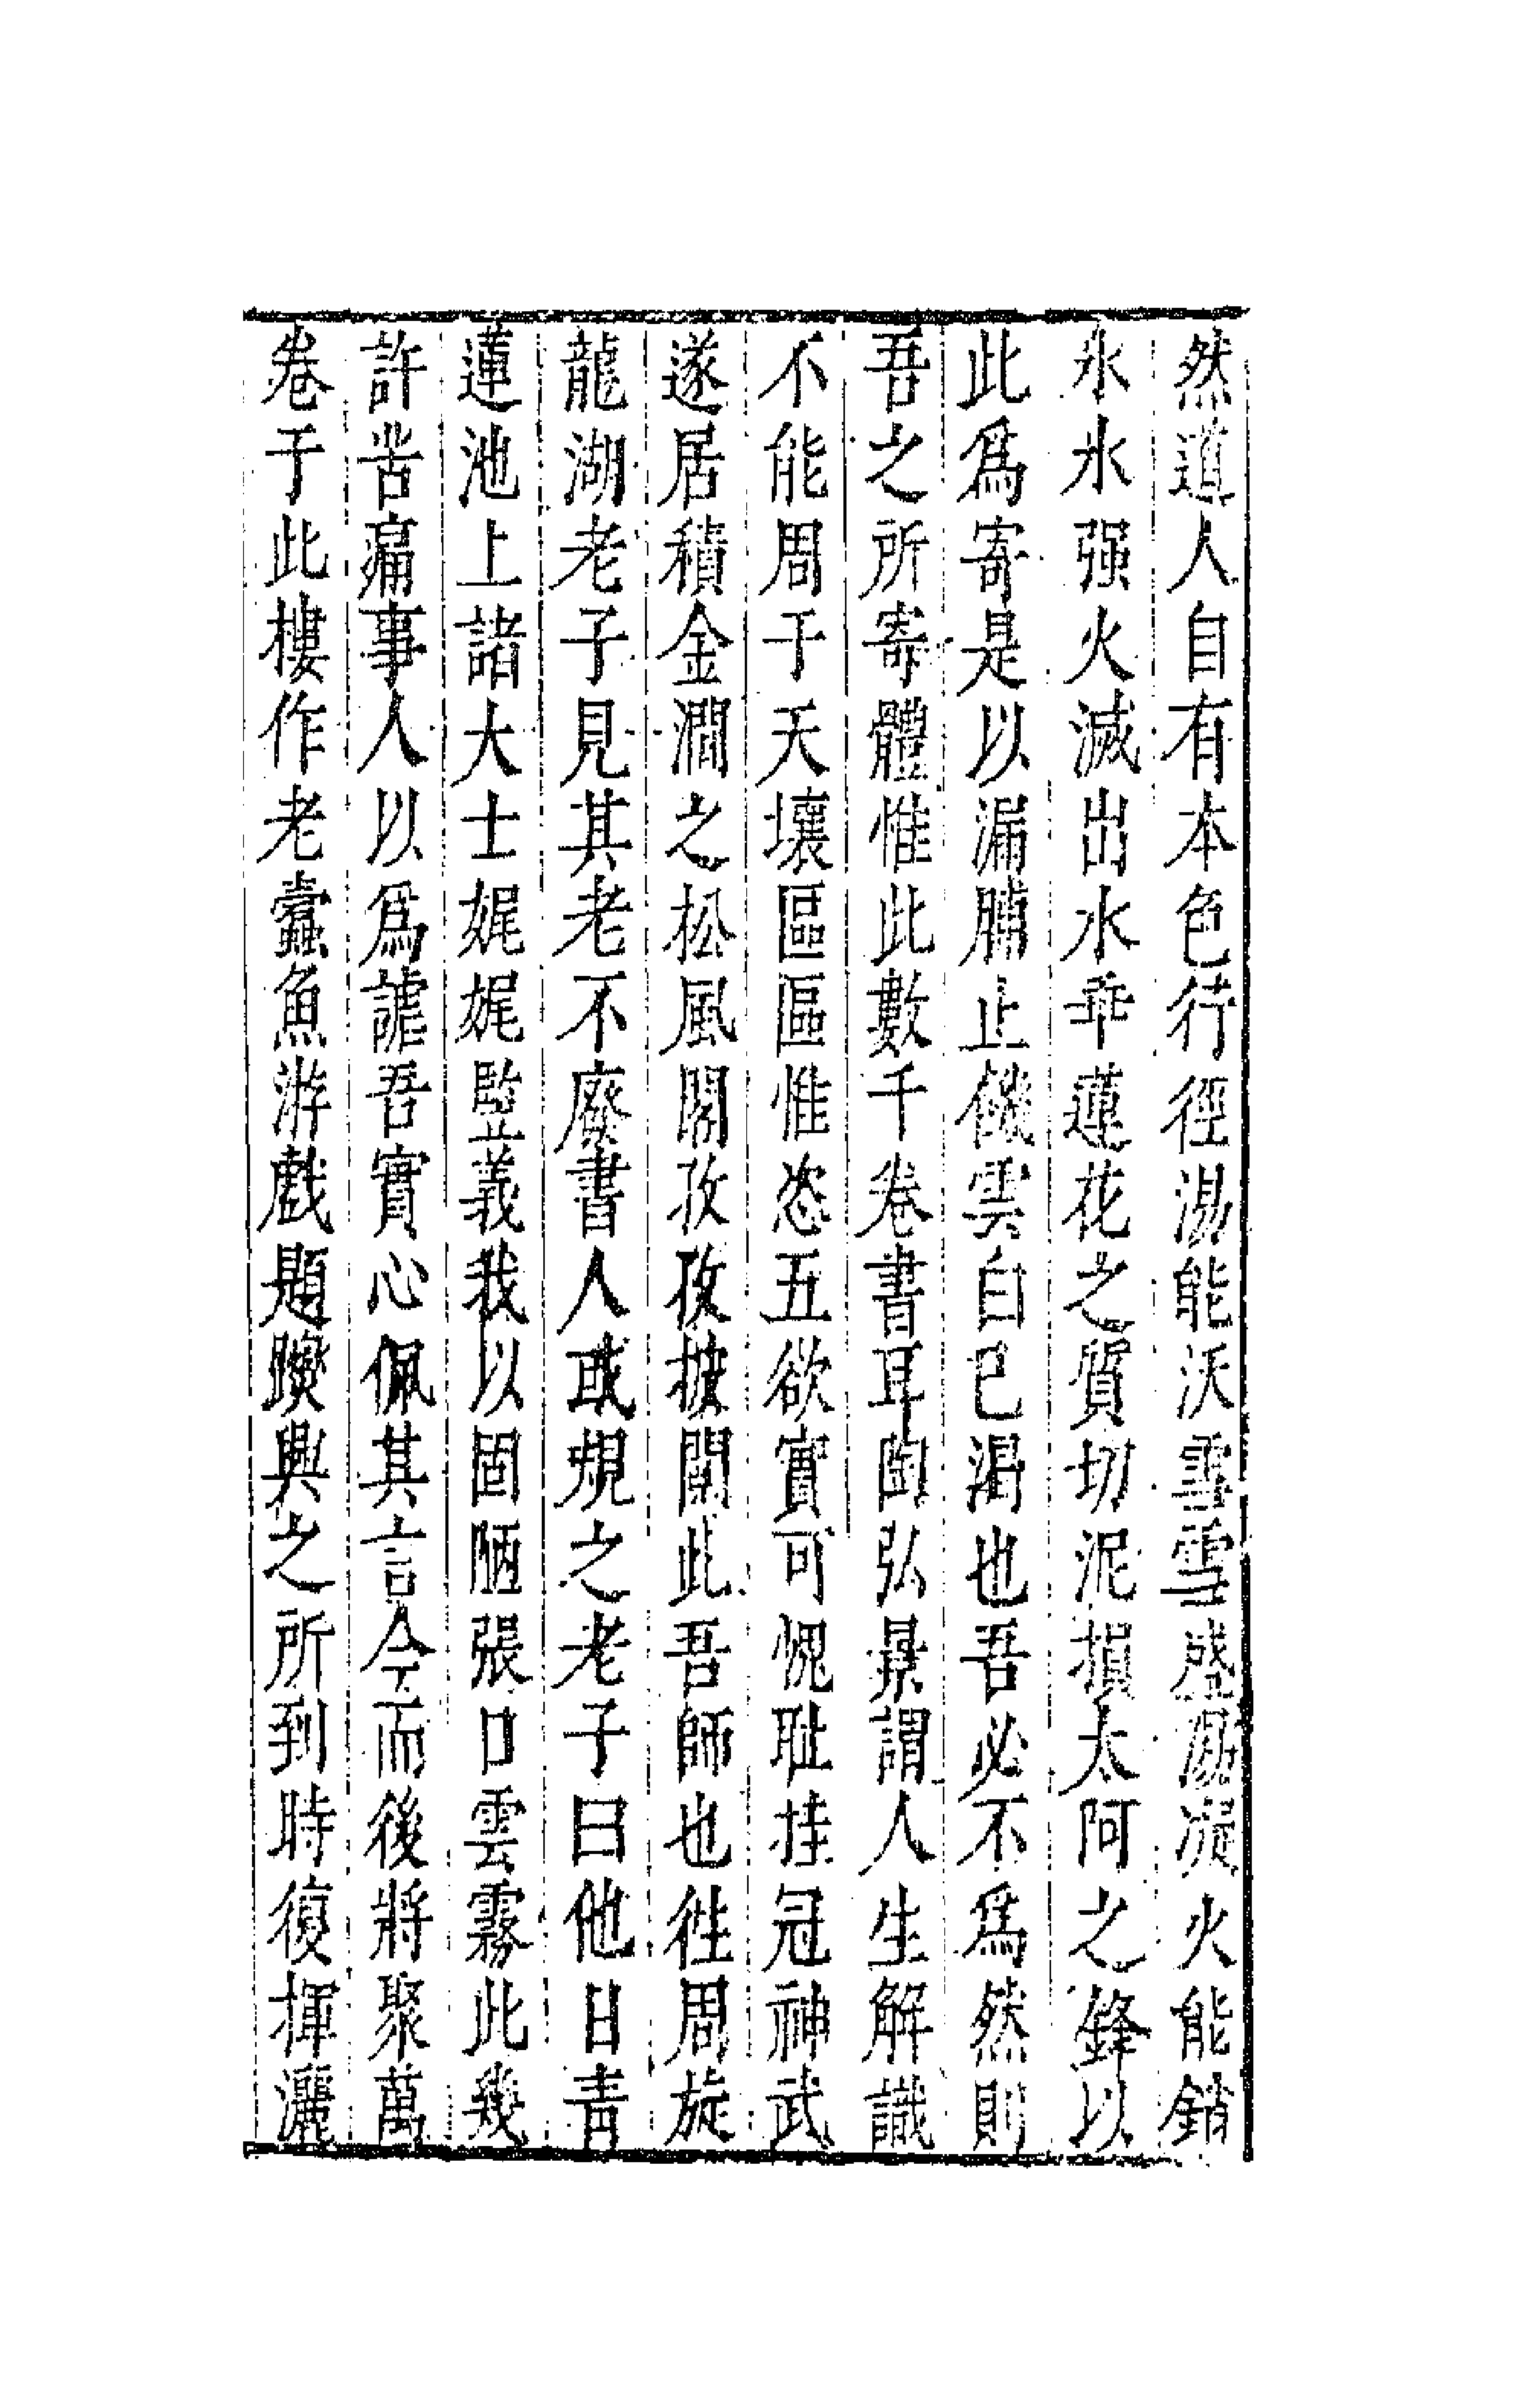 然道人自有本色行徑湯能沃雪雪盛湯凝火能銷
氷氷强火滅出水乖蓮花之質切泥損太阿之鋒以
此爲寄是以漏脯止饑雲白已渴也吾必不爲然則
吾之所寄體惟此數千卷書耳陶弘景謂人生解識
不能周于天壤區區惟恣五欲實可愧耻挂冠神武
遂居積金澗之松風閣孜孜披閱此吾師也徃周旋
龍湖老子見其老不廢書人或規之老子曰他日青
蓮池上諸大士娓娓竪義我以固陋張口雲霧此幾
許苦痛事人以爲謔吾實心佩其言今而後將聚萬
卷于此樓作老蠹魚游戲題躞興之所到時復揮灑